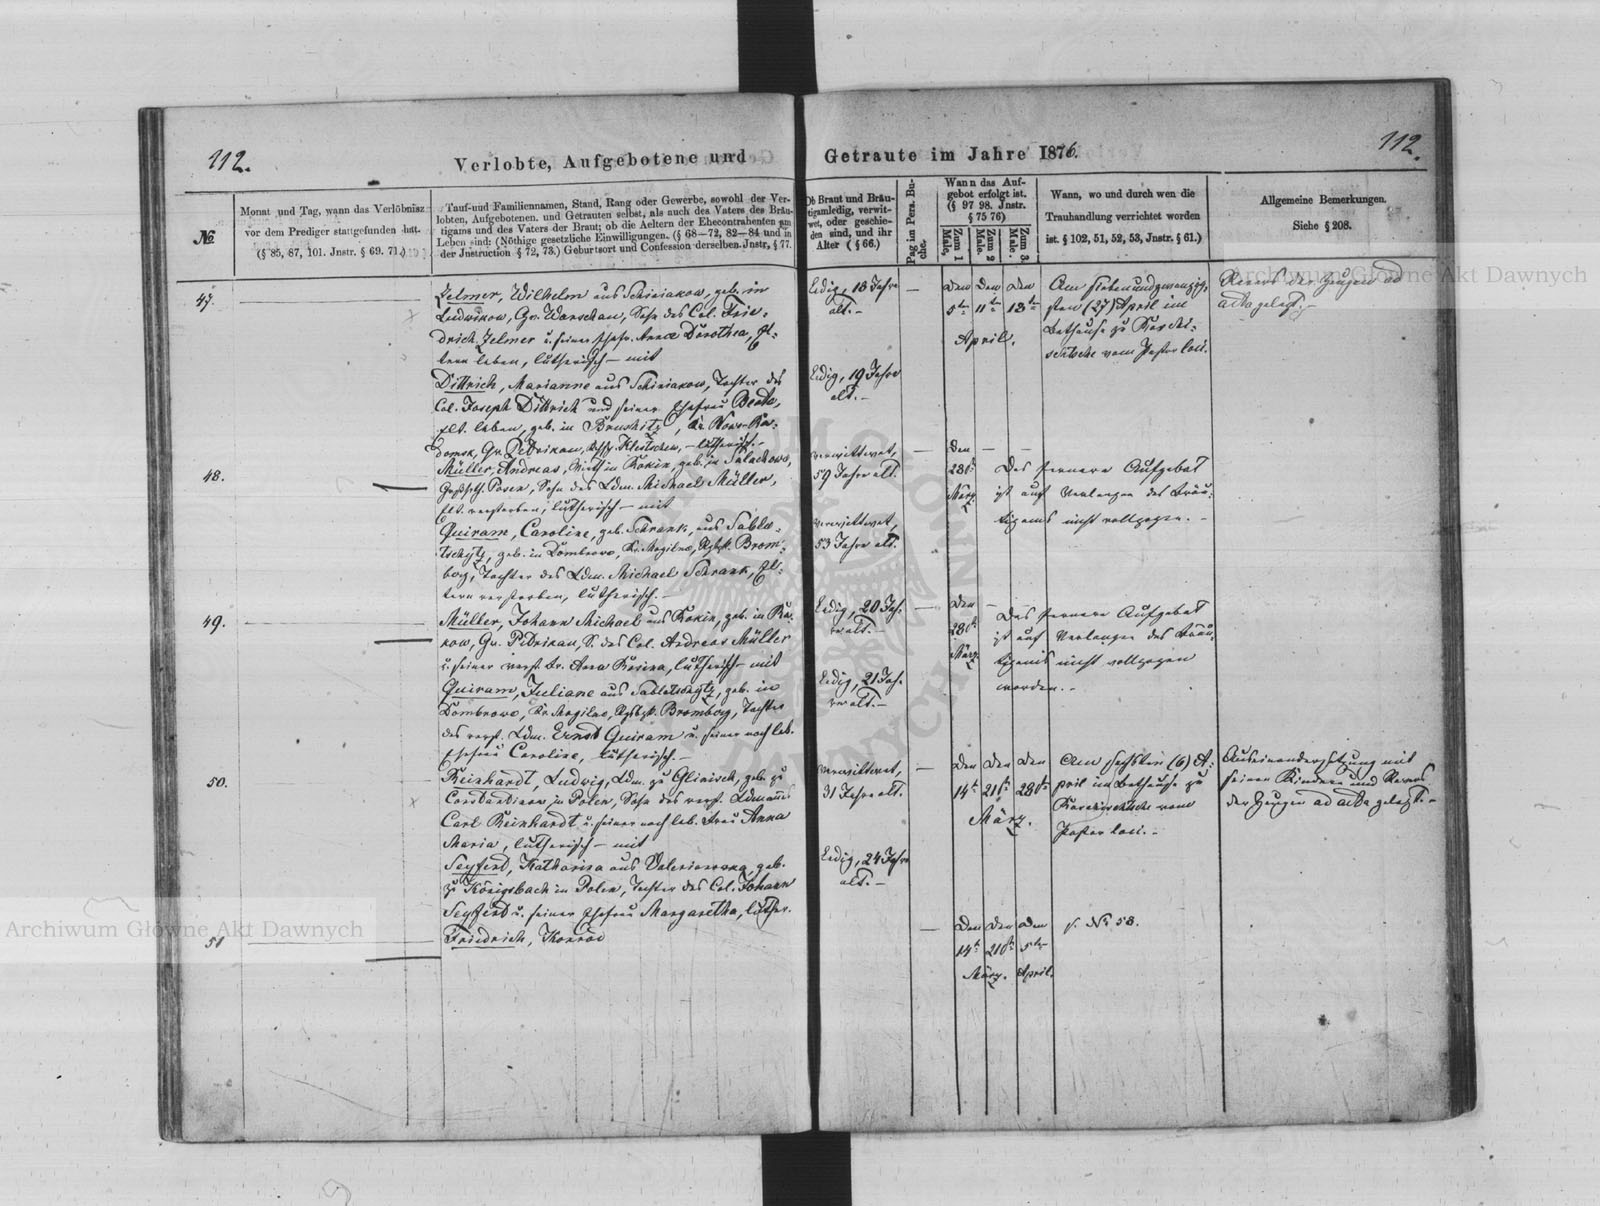 112.
112.
Verlobte, Aufgebotene und
Getraute im Jahre 1876.
№
Monat und Tag, wann das Verlöbnisz
vor dem Prediger stattgefunden hat.
(§ 85, 87, 101. Jnstr. § 69. 71.)
Tauf-und Familiennamen, Stand, Rang oder Gewerbe, sowohl der Ver-
lobten, Aufgebotenen, und Getrauten selbst, als auch des Vaters des Bräu-
tigams und des Vaters der Braut; ob die Aeltern der Ehecontrahenten am
Leben sind; (Nöthige gesetzliche Einwilligungen. (§ 68—72, 82—84 und in
der Jnstruction § 72, 73.) Geburtsort und Confession derselben. Jnstr. § 77.
Ob Braut und Bräu-
tigam ledig, verwit-
wet, oder geschie-
den sind, und ihr
Alter (§ 66.)
Pag im Pers. Bu-
che.
Wann das Auf-
gebot erfolgt ist.
(§ 97 98. Jnstr.
§ 75 76)
Zum 1 Male.
Zum 2 Male.
Zum 3 Male.
Wann, wo und durch wen die
Trauhandlung verrichtet worden
ist. § 102, 51, 52, 53, Jnstr. § 61.)
Allgemeine Bemerkungen.
Siehe § 208.
47.
Zelmer, Wilhelm aus Schiniakow, geb. in
Ludwikow, Gv. Warschau, Sohn des Col. Frie-
drich Zelmer u. seiner Ehefr. Anna Dorothea, El-
tern leben, lutherisch – mit
Dittrich, Marianne aus Schiniakow, Tochter des
Col. Joseph Dittrich und seiner Ehefrau Beate,
Elt. leben, geb. in
domsk, Gv. Petrikow, lutherisch.–
Ledig, 18 Jahre
alt.–
Ledig, 19 Jahre
alt.–
Den Den Den
5te 11te 18te
April.
Am siebenundzwanzig-
sten (27) April im
Bethause zu
vom Pastor loci.
Revers der Zeugen ad
acta gelegt.
48.
Müller, Andreas, Wirth in Kokin, geb. in
Posen, Sohn des Ldm. Michael Müller,
Elt. verstorben, lutherisch – mit
Quiram, Caroline, geb. Schrank, aus Sable-
tschytz, geb. in Dombrowo, Kr. Mogilno, Rgbzk. Brom-
berg, Tochter des Ldm. Michael Schrank, El-
tern verstorben, lutherisch.–
verwittwet,
59 Jahre alt.
verwittwet,
53 Jahre alt.
Den
28te
März
Das fernere Aufgebot
ist auf Verlangen des Bräu-
tigams nicht vollzogen.–
49.
Müller, Johann Michael aus Kokin, geb. in
kow, Gv. Petrikau, S. des Col. Andreas Müller
u. seiner verst. Fr. Anna Rosina, lutherisch – mit
Quiram, Juliane aus Sabletschytz, geb. in
Dombrowo, Kr. Mogilno, Rgbzk. Bromberg, Tochter
des verst. Ldm. Ernst Quiram u. seiner noch leb.
Ehefrau Caroline, lutherisch.–
Ledig, 20 Jah-
re alt.–
Ledig, 21 Jah-
re alt.–
Den
28te
März
Das fernere Aufgebot
ist auf Verlangen des Bräu-
tigams nicht vollzogen
worden.–
50.
Reinhardt, Ludwig, Ldm. zu Glinisch, geb. zu
Constantinow in Polen, Sohn des verst. Ldmanns
Carl Reinhardt u. seiner noch leb. Frau Anna
Maria, lutherisch – mit
Seyferd, Katharina aus Valerianowka, geb.
zu Königsbach in Polen, Tochter des Col. Johann
Seyferd u. seiner Ehefrau Margaretha, luther.
verwittwet,
31 Jahre alt.
Ledig, 24 Jahre
alt.–
Den Den Den
14te 21te 28te
März.
Am sechsten (6) A-
pril im Bethause zu
vom
Pastor loci.–
Auseinandersetzung mit
seinen Kindern und Revers
der Zeugen ad acta gelegt.–
51
Friedrich, Konrad
Den Den Den
14te 21te 5te
März. April.
s. No 58.
Archiwum Główne Akt Dawnych
Archiwum Główne Akt Dawnych